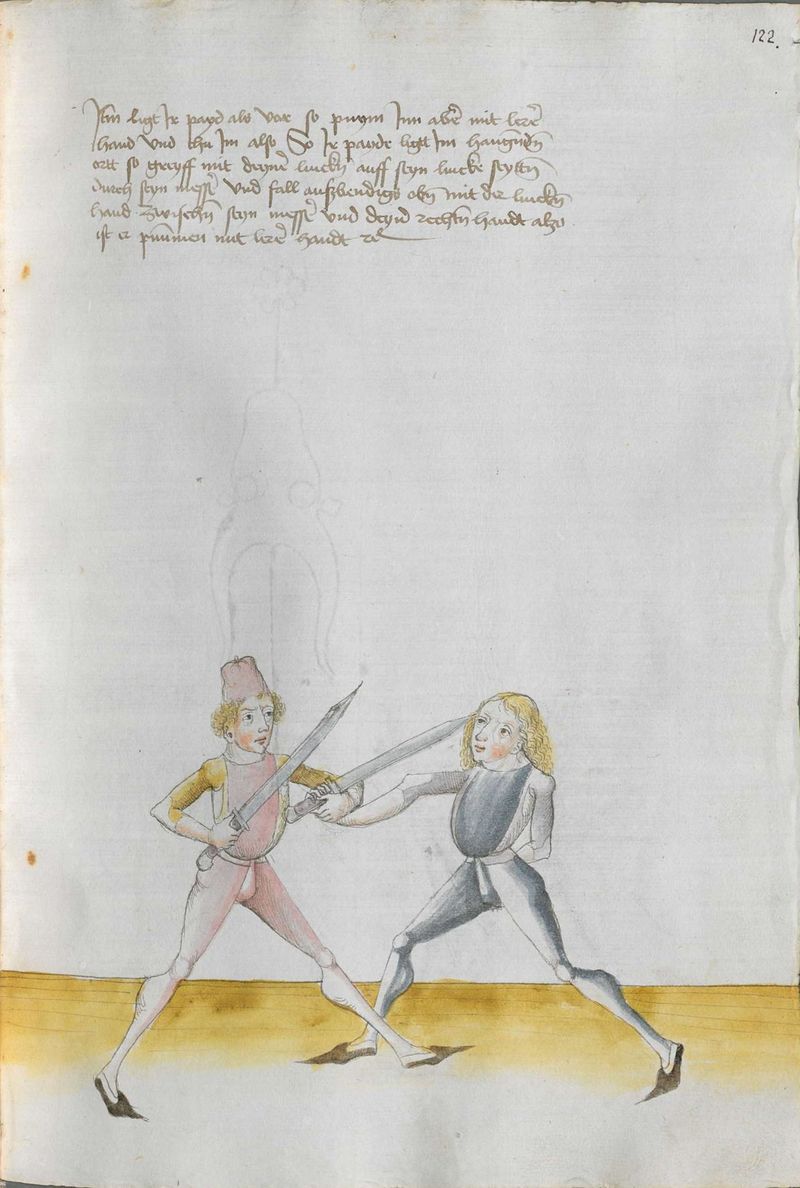 122.
Itm ligt Ir payd als vor so prym Inn aber mit lerer
hand Vnd thu Im also So Ir payde ligtt Im hangenden
ortt so greyff mit deyner lincken auff seyn lincke seytten
durch seyn messer vnd fall auszbendigs oben mit der lincken
hand zwischen seyn messer vnd deyn rechten handt also
ist er prummen mit lerer handt rc